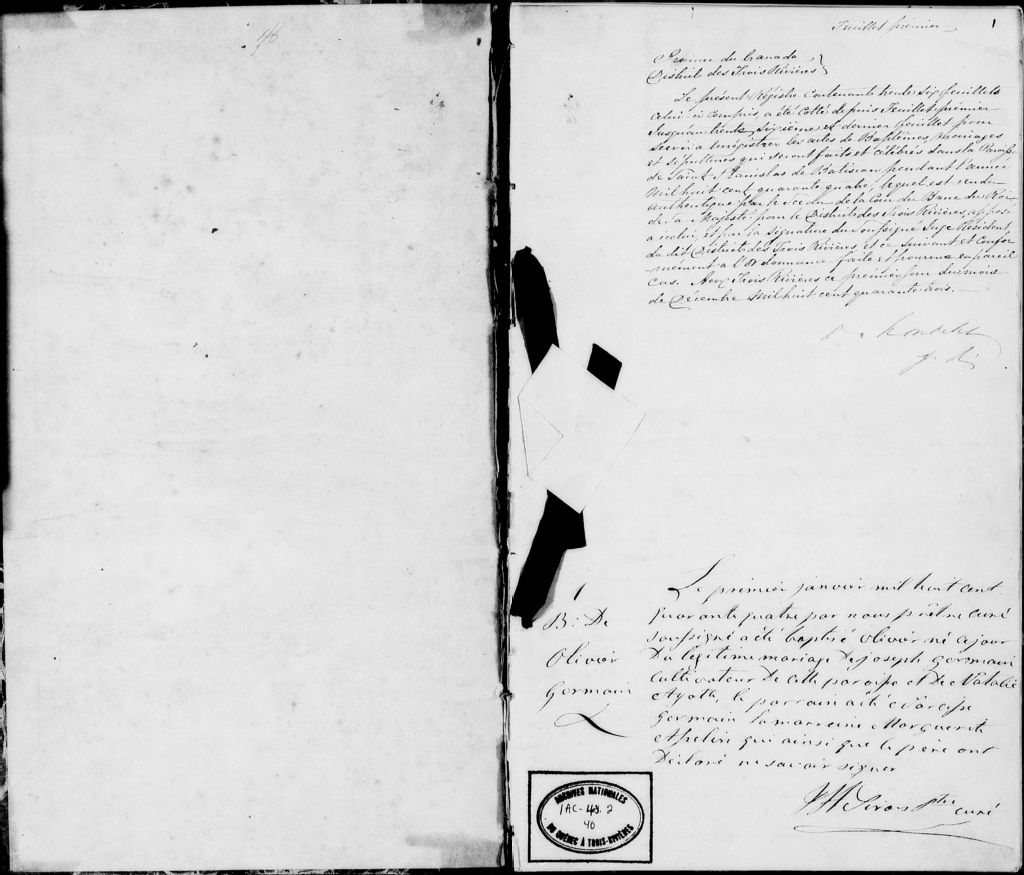 46
Feuillet prémier
1
Province du Canada
District des Trois Rivières
Le présent Régistre contenant trente six feuillets
celui ci compris, a été cotté depuis Feuillet prémier
jusquau trente sixième et dernier feuillet pour
servir a enrégistrer les actes de Baptêmes, mariages
et sépultures qui seront faits et célébrés dans la Paroisse
de Saint Stanislas de Batiscan pendant l'année
Mil huit cent quarante quatre, lequel est rendu
authentique par le sceau de la Cour du Banc du Roi
de Sa Majesté pour le District des Trois Rivières, apposé
a icelui, et par la signature du soussigné Juge Résident
du dit District des Trois Rivières, et ce suivant et confor
mément a l'Ordonnance faite et pourvue en pareil
cas. Aux Trois Rivières ce prémier jour du mois
de Décembre Mil huit cent quarante trois.
1
B: De
Olivier
Germain
Le premier janvier mil huit cent
quarante quatre par nous prêtre curé
soussigné a été baptisé Olivier né ce jour
du légitime mariage de joseph germain
cultivateur De cette paroisse et De Natalie
Ayotte, le parrain a été Narcisse
germain la marreine Marguerite
qui ainsi que le père ont
Déclaré ne savoir signer
ptre curé
ARCHIVES NATIONALES
1AC-48.2
40
DU QUÉBEC À TROIS-RIVIÈRES